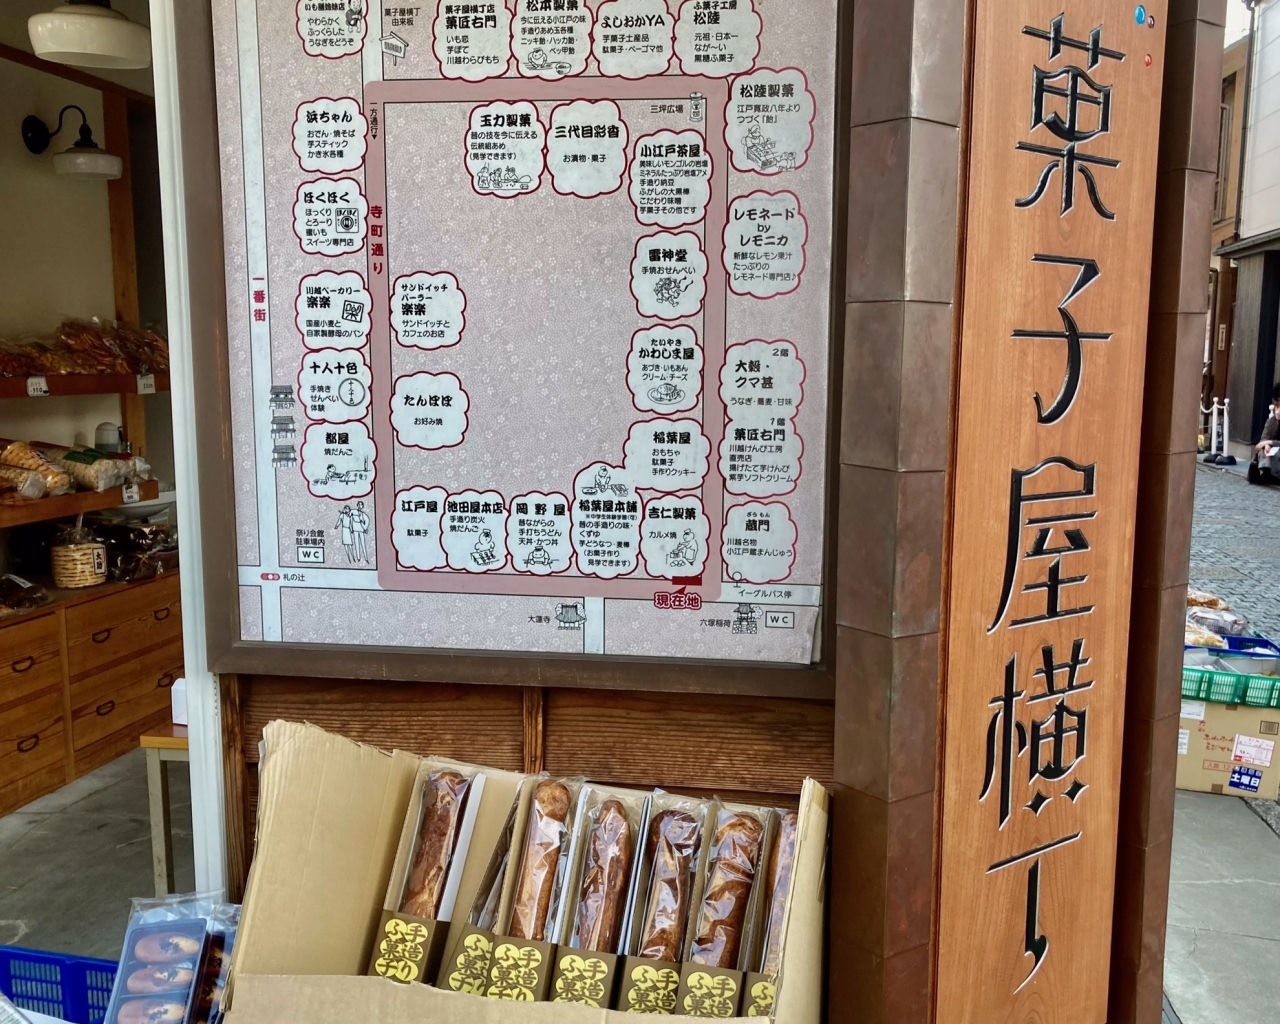 いも膳姉妹店
やわらかく
ふっくらした
うなぎをどうぞ
菓子屋横丁
由来板
菓子屋横丁店
菓匠右門
いも恋
芋ぽて
川越わらびもち
松本製菓
今に伝える小江戸の味
手造りあめ玉各種
ニッキ飴・ハッカ飴・
べっ甲飴
よしおかYA
芋菓子土産品
駄菓子・ベーゴマ他
ふ菓子工房
松陸
元祖・日本一
なが〜い
黒糖ふ菓子
松陸製菓
江戸寛政八年より
つづく「飴」
一方通行
三坪広場
浜ちゃん
おでん・焼そば
芋スティック
かき氷各種
玉力製菓
昔の技を今に伝える
伝統組あめ
(見学できます)
三代目彩香
お漬物・菓子
小江戸茶屋
美味しいモンゴルの岩塩
ミネラルたっぷり岩塩アメ
手造り納豆
ふがしの大黒棒
こだわり味噌
芋菓子その他です
ほくほく
ほっくり
とろーり
蜜いも
スイーツ専門店
寺町通り
レモネード
by
レモニカ
新鮮なレモン果汁
たっぷりの
レモネード専門店♪
雷神堂
手焼おせんべい
一番街
川越ベーカリー
楽楽
国産小麦と
自家製酵母のパン
サンドイッチ
パーラー
楽楽
サンドイッチと
カフェのお店
たいやき
かわしま屋
あづき・いもあん
クリーム・チーズ
2階
大穀・
クマ甚
うなぎ・蕎麦・甘味
1階
菓匠右門
川越けんぴ工房
直売店
揚げたて芋けんぴ
紫芋ソフトクリーム
十人十色
手焼き
せんべい
体験
たんぽぽ
お好み焼
都屋
焼だんご
稲葉屋
おもちゃ
駄菓子
手作りクッキー
江戸屋
駄菓子
池田屋本店
手造り炭火
焼だんご
岡野屋
昔ながらの
手打ちうどん
天丼・かつ丼
稲葉屋本舗
昔の手造りの味・
くずゆ
芋どうなつ・麦棒
(お菓子作り
見学できます)
吉仁製菓
カルメ焼
ぞうもん
蔵門
川越名物
小江戸蔵まんじゅう
祭り会館
駐車場内
WC
札の辻
現在地
イーグルバス停
大蓮寺
六塚稲荷
WC
菓子屋横丁
手造り
ふ菓子
手造り
ふ菓子
手造
ふ菓
手造
ふ菓
手造
ふ菓
土曜日